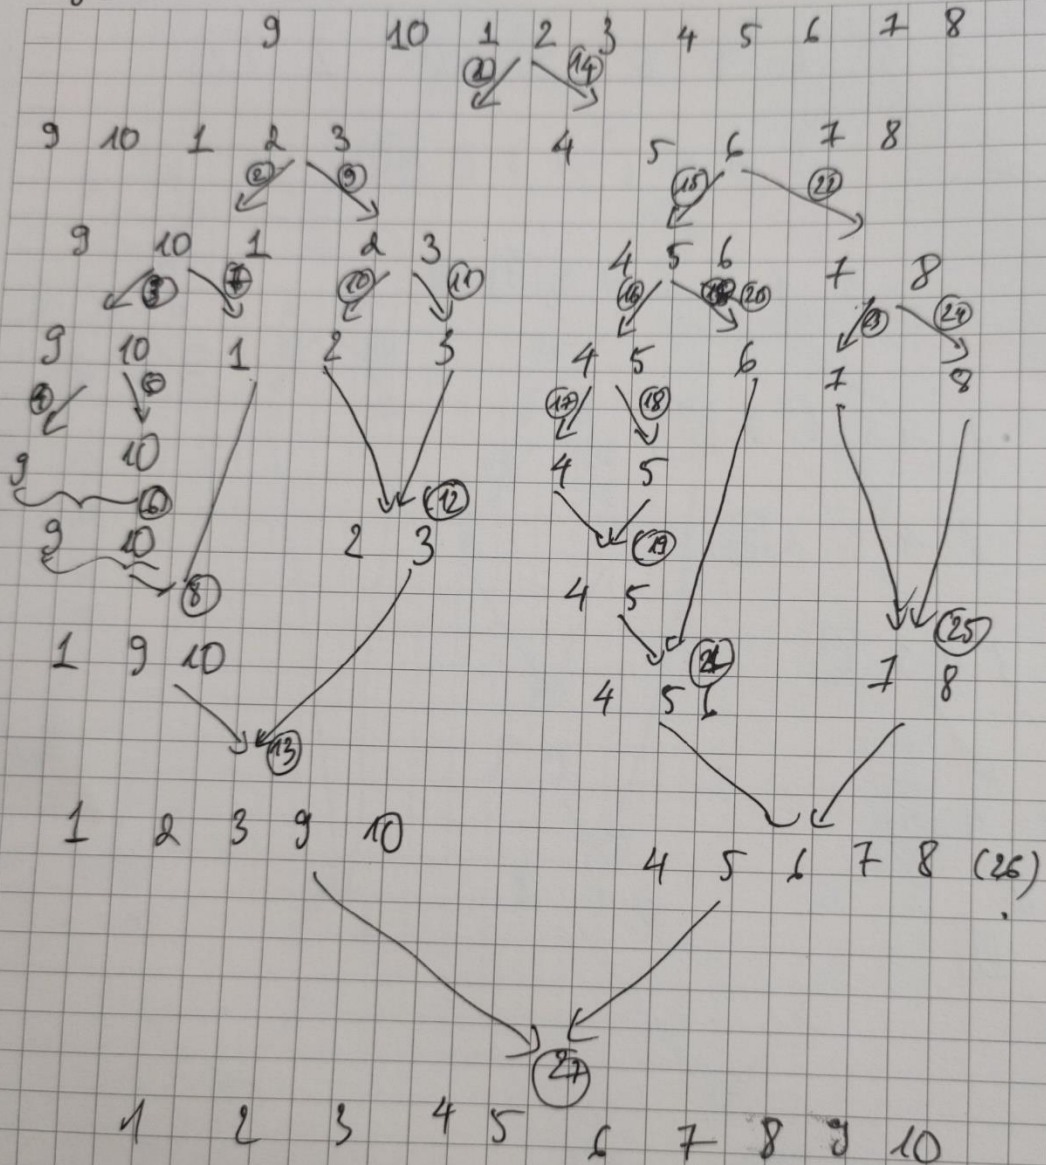 9 10 1 2 3 4 5 6 7 8
14
9 10 1 2 3 4 5 6 7 8
2 9 15 22
9 10 1 2 3 4 5 6 7 8
7 10 11 16 20 23 24
9 10 1 2 3 4 5 6 7 8
4 17 18
10 4 5
9 6 12
9 10 2 3 19
8 4 5
1 9 10 21 25
4 5 6 7 8
13
1 2 3 9 10
4 5 6 7 8 (26)
27
1 2 3 4 5 6 7 8 9 10